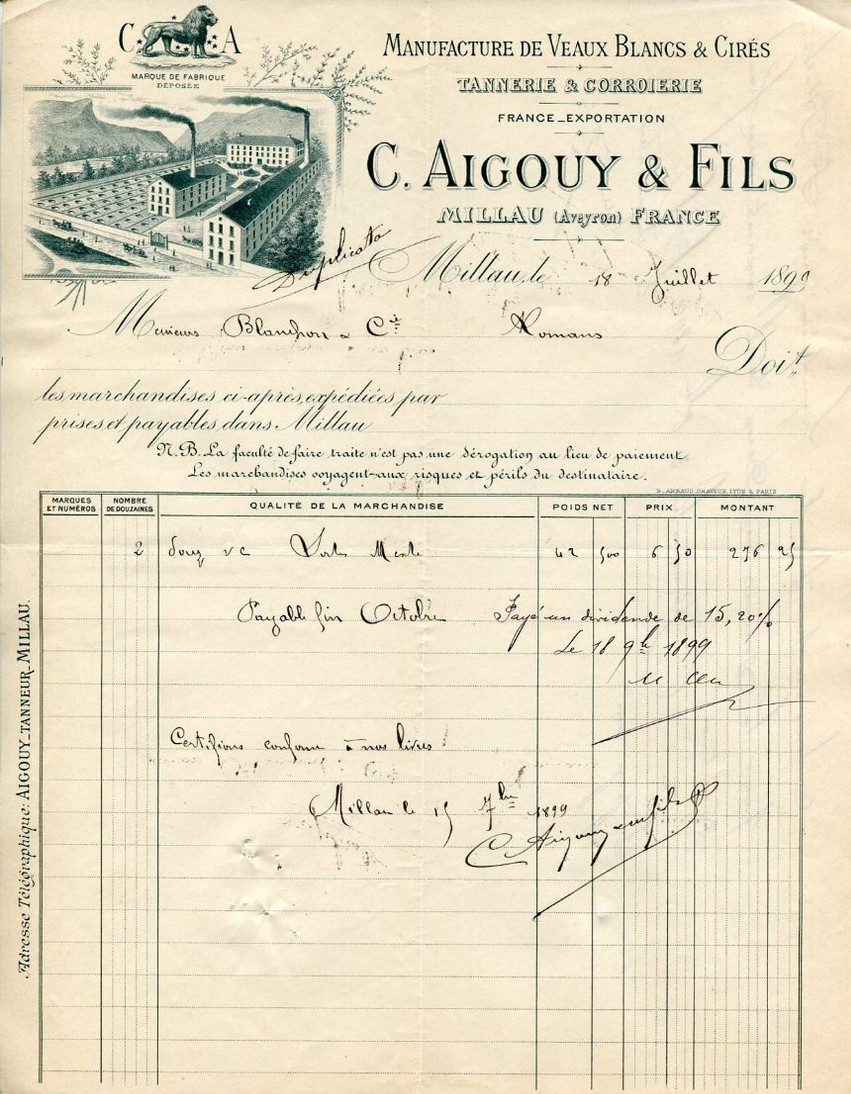 C A
MARQUE DE FABRIQUE
DÉPOSÉE
MANUFACTURE DE VEAUX BLANCS & CIRÉS
TANNERIE & CORROIERIE
FRANCE_EXPORTATION
C. AIGOUY & FILS
MILLAU (Aveyron) FRANCE
Duplicata
Millau, le 18 Juillet 1899
Messieurs Blanchon & Cie Romans
Doit
les marchandises ci-après, expédiées par
prises et payables dans Millau
N.B. La faculté de faire traite n'est pas une dérogation au lieu de paiement.
Les marchandises voyagent aux risques et périls du destinataire.
B. ARNAUD, GRAVEUR, LYON & PARIS
MARQUES ET NUMÉROS NOMBRE DE DOUZAINES QUALITÉ DE LA MARCHANDISE POIDS NET PRIX MONTANT
2 douz v c 42 500 6 50 276 25
Payable fin Octobre Payé un dividende de 15,20%
Le 18 9bre 1899
Certifions conforme à nos livres
Millau le 15 7bre 1899
C. Aigouy & fils
Adresse Télégraphique: AIGOUY_TANNEUR_MILLAU.